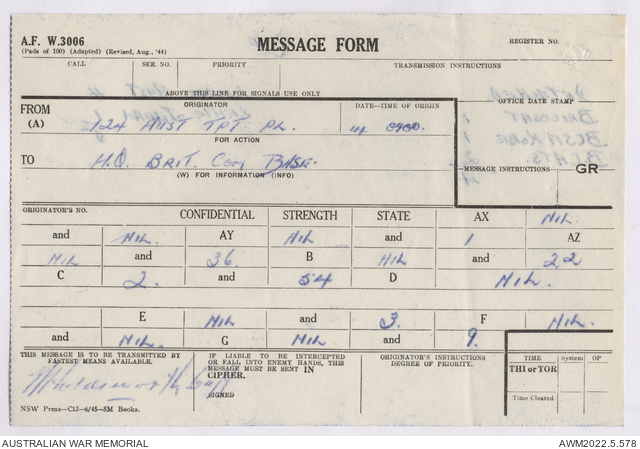 A.F. W.3006
(Pads of 100) (Adapted) (Revised, Aug., '44)
MESSAGE FORM
REGISTER NO.
CALL SER. NO. PRIORITY TRANSMISSION INSTRUCTIONS
ABOVE THIS LINE FOR SIGNALS USE ONLY
FROM ORIGINATOR DATE–TIME OF ORIGIN OFFICE DATE STAMP
(A) 124 AUST TPT PL. 0900.
FOR ACTION
TO H.Q. BRIT. COM BASE. MESSAGE INSTRUCTIONS GR
(W) FOR INFORMATION (INFO)
ORIGINATOR'S NO. CONFIDENTIAL STRENGTH STATE AX NIL.
and NIL AY NIL and 1 AZ
NIL and 36 B NIL and 22
C 2. and 54 D NIL.
E NIL and 3. F NIL.
and NIL. G NIL and 9.
THIS MESSAGE IS TO BE TRANSMITTED BY
FASTEST MEANS AVAILABLE.
IF LIABLE TO BE INTERCEPTED
OR FALL INTO ENEMY HANDS, THIS
MESSAGE MUST BE SENT IN
CIPHER.
SIGNED
ORIGINATOR'S INSTRUCTIONS
DEGREE OF PRIORITY.
TIME system OP
THI or TOR
Time Cleared
NSW Press—C13—6/45—5M Books.
AUSTRALIAN WAR MEMORIAL
AWM2022.5.578